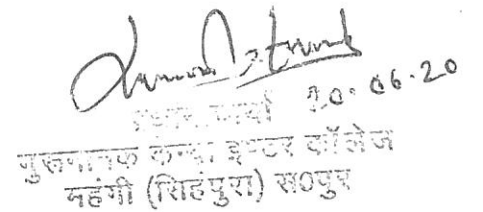 30.06.20
प्रधानाचार्या
गुरूनानक कन्या इण्टर कॉलेज
महंगी (सिहंपुरा) स०पुर